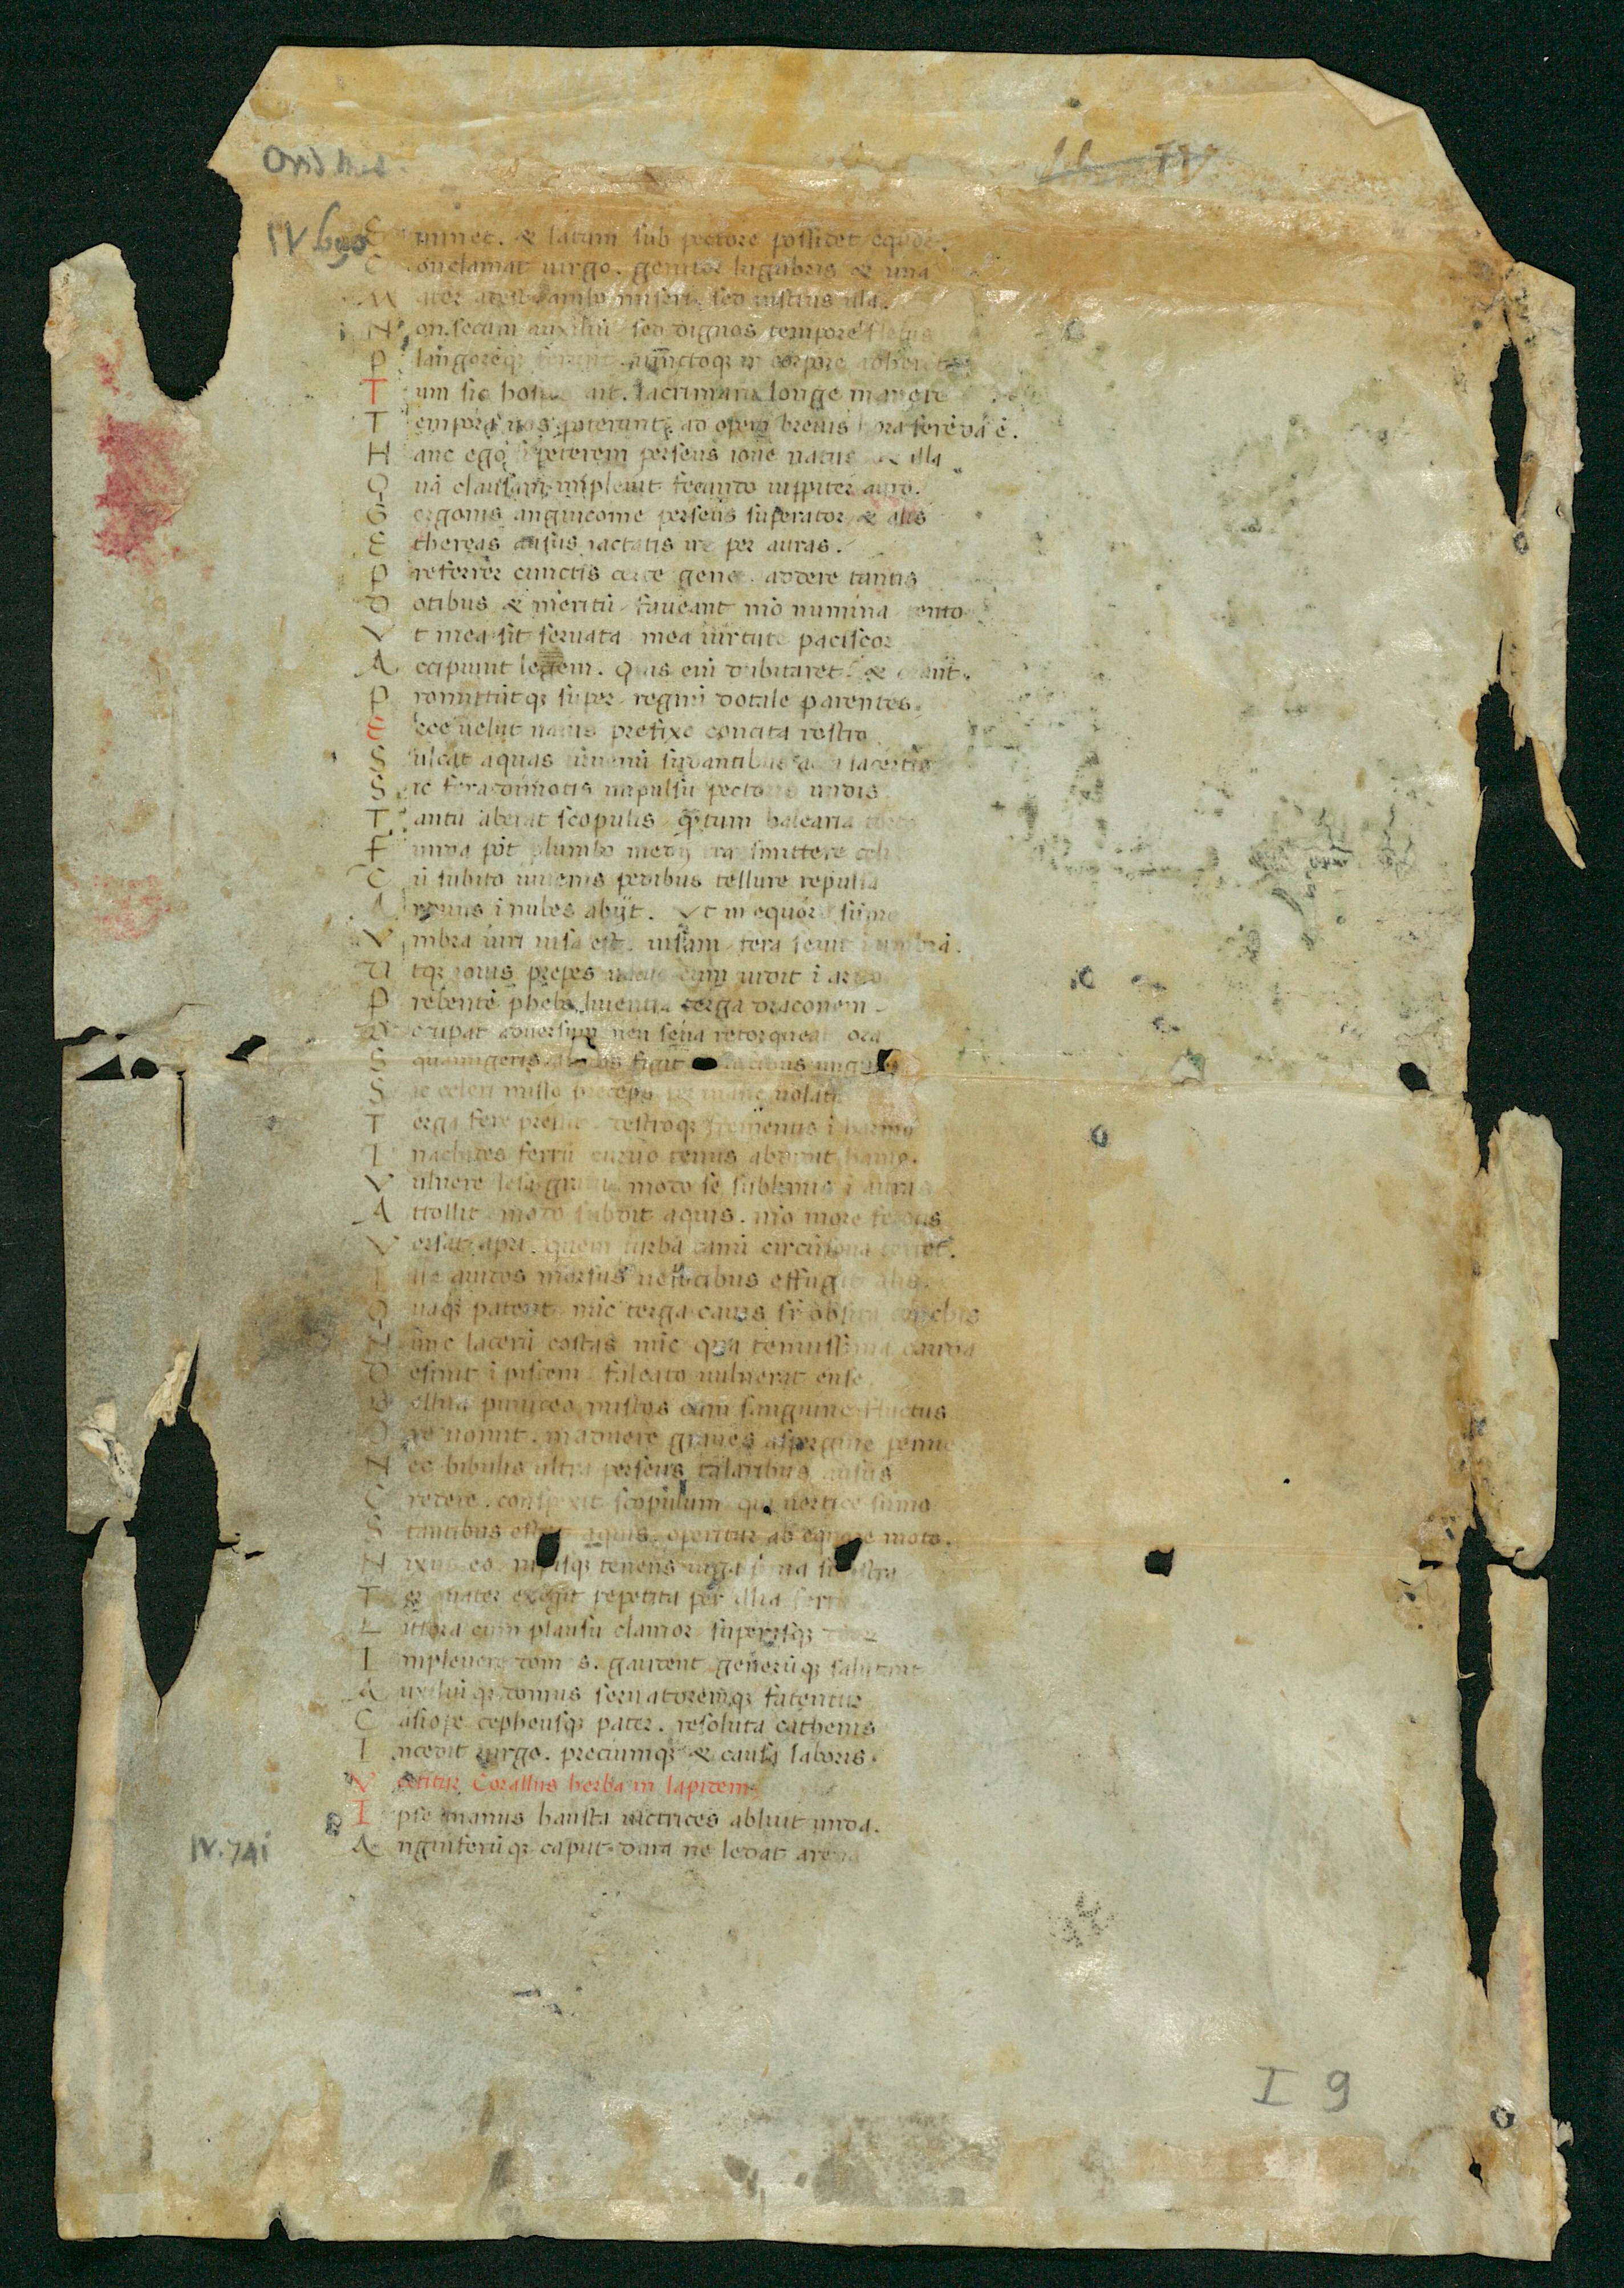 Ovid Met.
IV 690
E minet. & latum sub pectore possidet equor.
C onclamat uirgo. genitor lugubris & una
M ater adest ambo miseri. sed iustius illa.
N on secum auxiliũ sed dignos tempore fletus
P langoreqz uinctoqz in corpore adherent
T um sic hospes ait. lacrimarũ longe manere
T empora uos poterunt. ad opem breuis hora ferẽdã ẽ.
H anc ego si peterem perseus ioue natus & illa
Q uã clausam impleuit fecundo iuppiter auro.
G orgonis anguicome perseus superator & alis
E thereas ausus iactatis ire per auras.
P referrer cunctis certe gener. addere tantis
D otibus & meritũ faueant mõ numina tento
V t mea sit seruata mea uirtute paciscor
A ccipiunt legem. Quis eni dubitaret. & orant.
P romittũtqz super regnũ dotale parentes.
E cce uelut nauis prefixo concita rostro
S ulcat aquas iuuenũ sudantibus acta lacertis
S ic fera dimotis impulsu pectoris undis
T antũ aberat scopulis q̃ntum balearia torto
F unda põt plumbo medij transmittere celi
C ũ subito iuuenis pedibus tellure repulsa
A rduus i nubes abijt. Vt in equore sũmo
V mbra uiri uisa est. uisam fera seuit i umbrã.
V tqz iouis prepes uacuo cum uidit i aruo
P rebentẽ phebo liuentia terga draconem
O ccupat aduersum neu seua retorqueat ora
S quamigeris figit auidis unguis
S ic celeri misso preceps per inane uolatu
T erga fere pressit. dextroqz frementis i harmo
I nachides ferrũ curuo tenus abdidit hamo.
V ulnere lesa graui modo se sublimis i auras
A ttollit. modo subdit aquis. mõ more ferocis
V ersat apri. quem turba canũ circũsona terret.
I lle auidos morsus uelocibus effugit alis.
Q uaqz patent. nũc terga cauis sup obsita conchis
N unc laterũ costas nũc qua tenuissima cauda
D esinit i piscem falcato uulnerat ense
B ellua puniceo mistos cum sanguine fluctus
O re uomit. maduere graues aspergine penne
N ec bibulis ultra perseus talaribus ausus
C redere. conspexit scopulum qui uertice sũmo
S tantibus estat aquis. operitur ab equore moto.
N ixus eo rupisqz tenens iuga prima sinistra
T er quater exegit repetita per illia ferrũ
L ittora cum plausu clamor superasqz deor
I mpleuere domos. gaudent generũqz salutant
A uxiliũqz domus seruatoremqz fatentur
C asiope cepheusqz pater. resoluta cathenis
I ncedit uirgo. preciumqz & causa laboris.
V ertitur Corallus herba in lapidem
I pse manus hausta uictrices abluit unda.
A nguiferũqz caput dura ne ledat arena
IV. 741
I 9